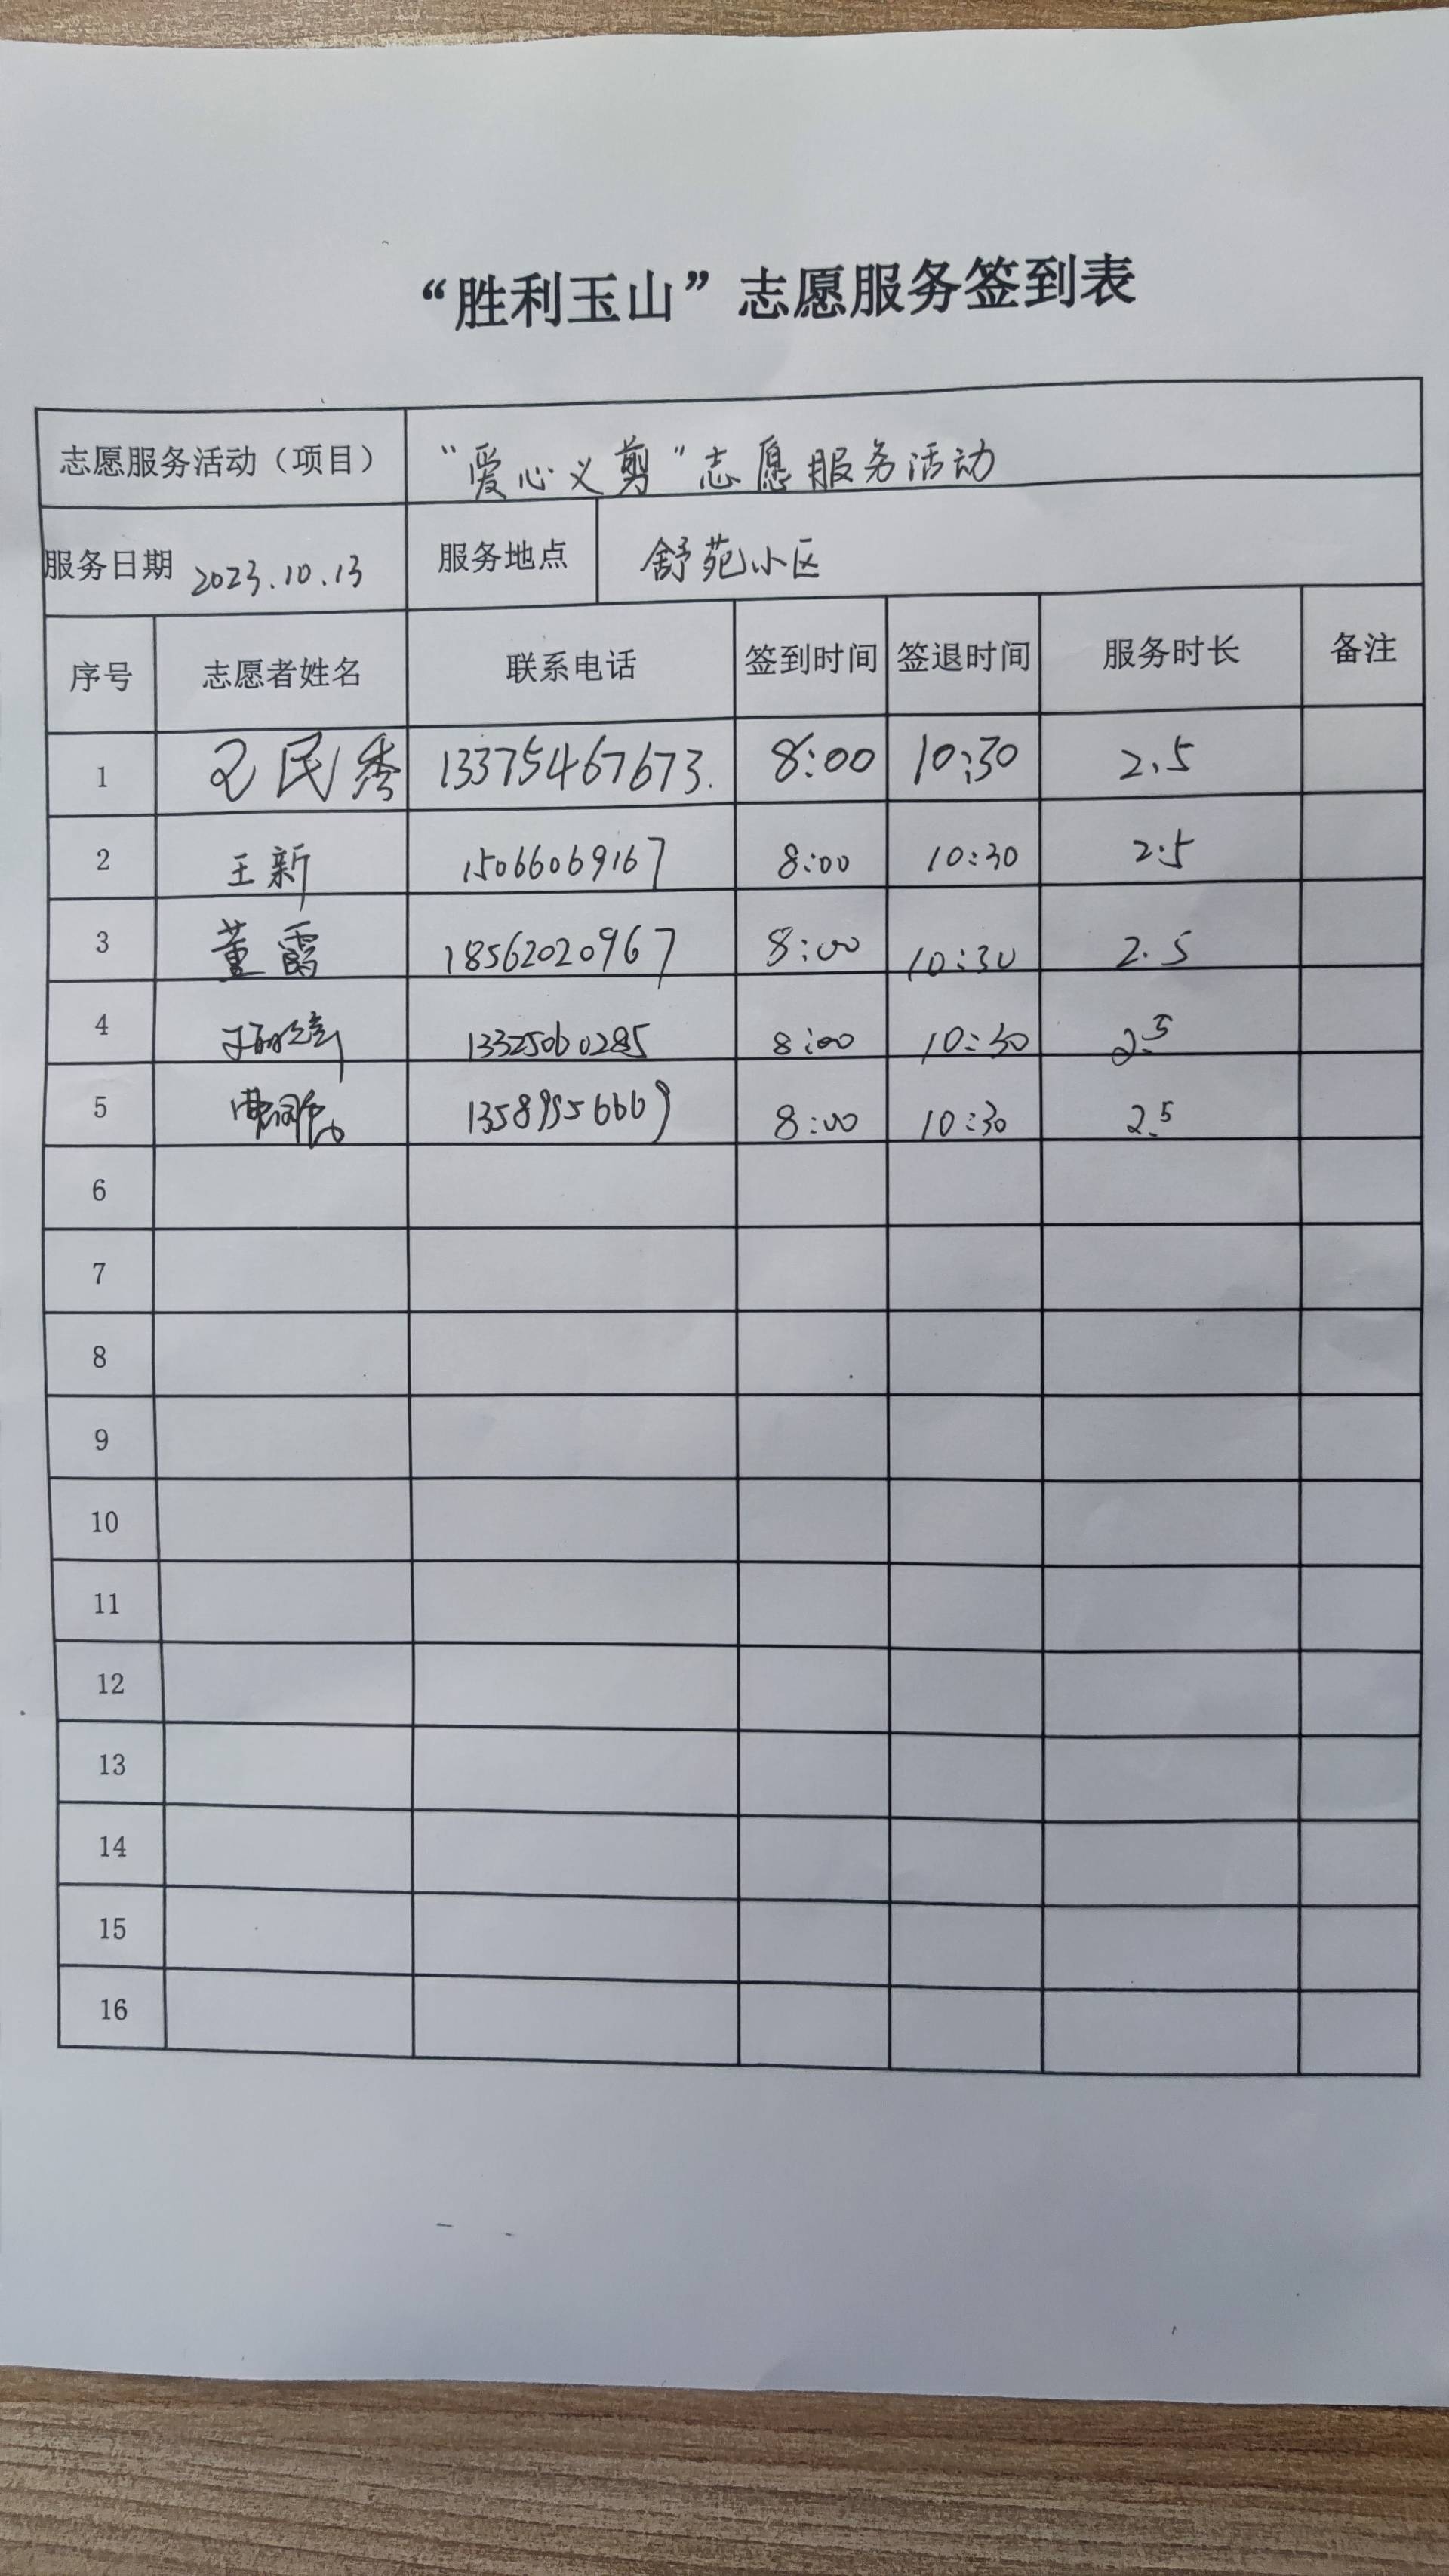 “胜利玉山”志愿服务签到表
志愿服务活动（项目） “爱心义剪”志愿服务活动
服务日期 2023.10.13 服务地点 舒苑小区
序号 志愿者姓名 联系电话 签到时间 签退时间 服务时长 备注
1 王民秀 13375467673. 8:00 10:30 2.5
2 王新 15066069167 8:00 10:30 2.5
3 董霞 18562020967 8:00 10:30 2.5
4 13325060285 8:00 10:30 2.5
5 13589956669 8:00 10:30 2.5
6
7
8
9
10
11
12
13
14
15
16